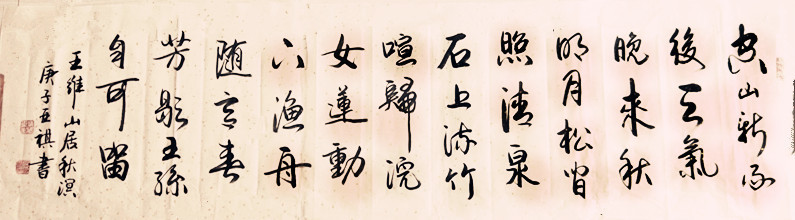 空山新雨
後天氣
晚來秋
明月松間
照清泉
石上流竹
喧歸浣
女蓮動
下漁舟
随意春
芳歇王孫
自可留
王維山居秋溟
庚子亚祺書